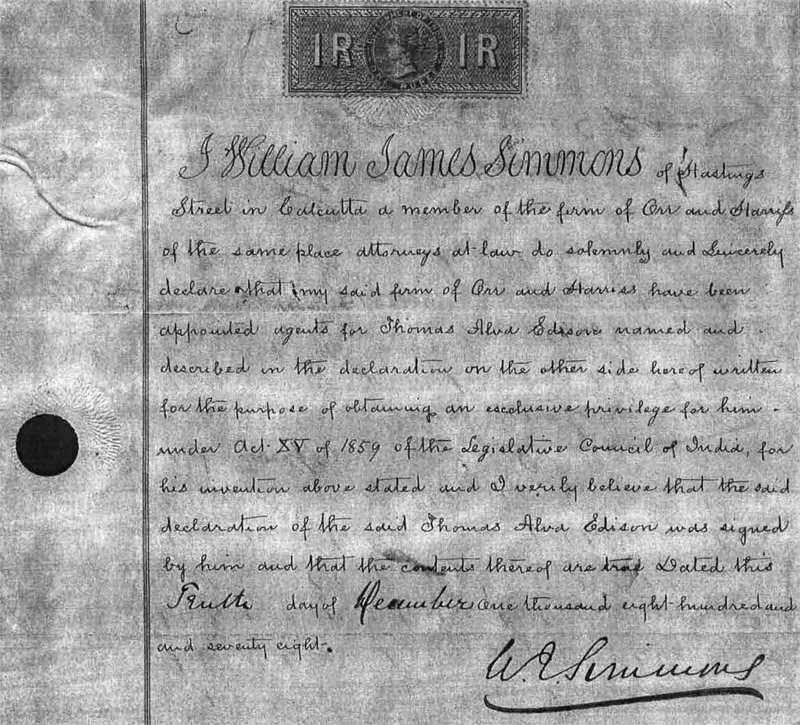 1R 1R
I William James Simmons of Hastings
Street in Calcutta a member of the firm of Orr and Harriss
of the same place attorneys at-law do solemnly and Sincerely
declare that my said firm of Orr and Harriss have been
appointed agents for Thomas Alva Edison named and
described in the declaration on the other side hereof written
for the purpose of obtaining an exclusive privilege for him -
under Act XV of 1859 of the Legislative Council of India, for
his invention above stated and I verily believe that the said
declaration of the said Thomas Alva Edison was signed
by him and that the contents thereof are true Dated this
Tenth day of December one thousand eight-hundred and
and seventy eight.
W. J. Simmons